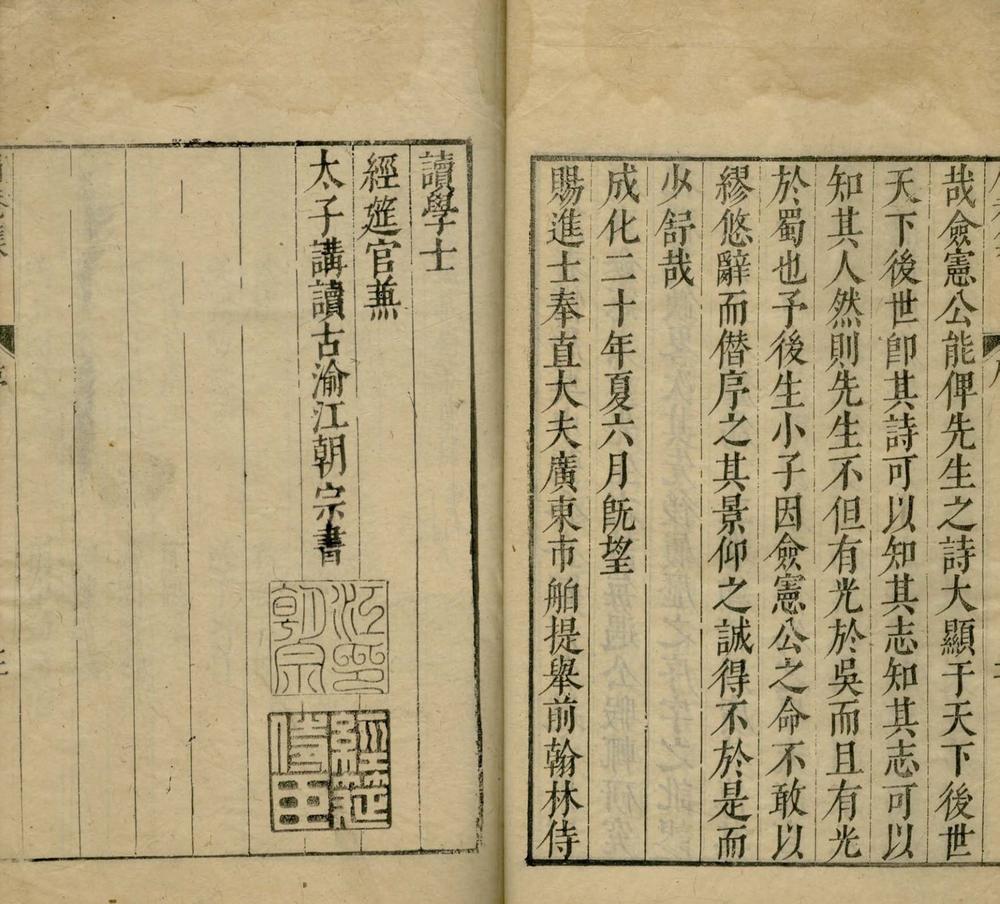 哉僉憲公能俾先生之詩大顯于天下後世
天下後世卽其詩可以知其志知其志可以
知其人然則先生不但有光於吳而且有光
於蜀也予後生小子因僉憲公之命不敢以
繆悠辭而僣序之其景仰之誠得不於是而
少舒哉
成化二十年夏六月旣望
賜進士奉直大夫廣東市舶提舉前翰林侍
讀學士
經筵官蒹
太子講讀古渝江朝宗書
江朝宗印
經筵